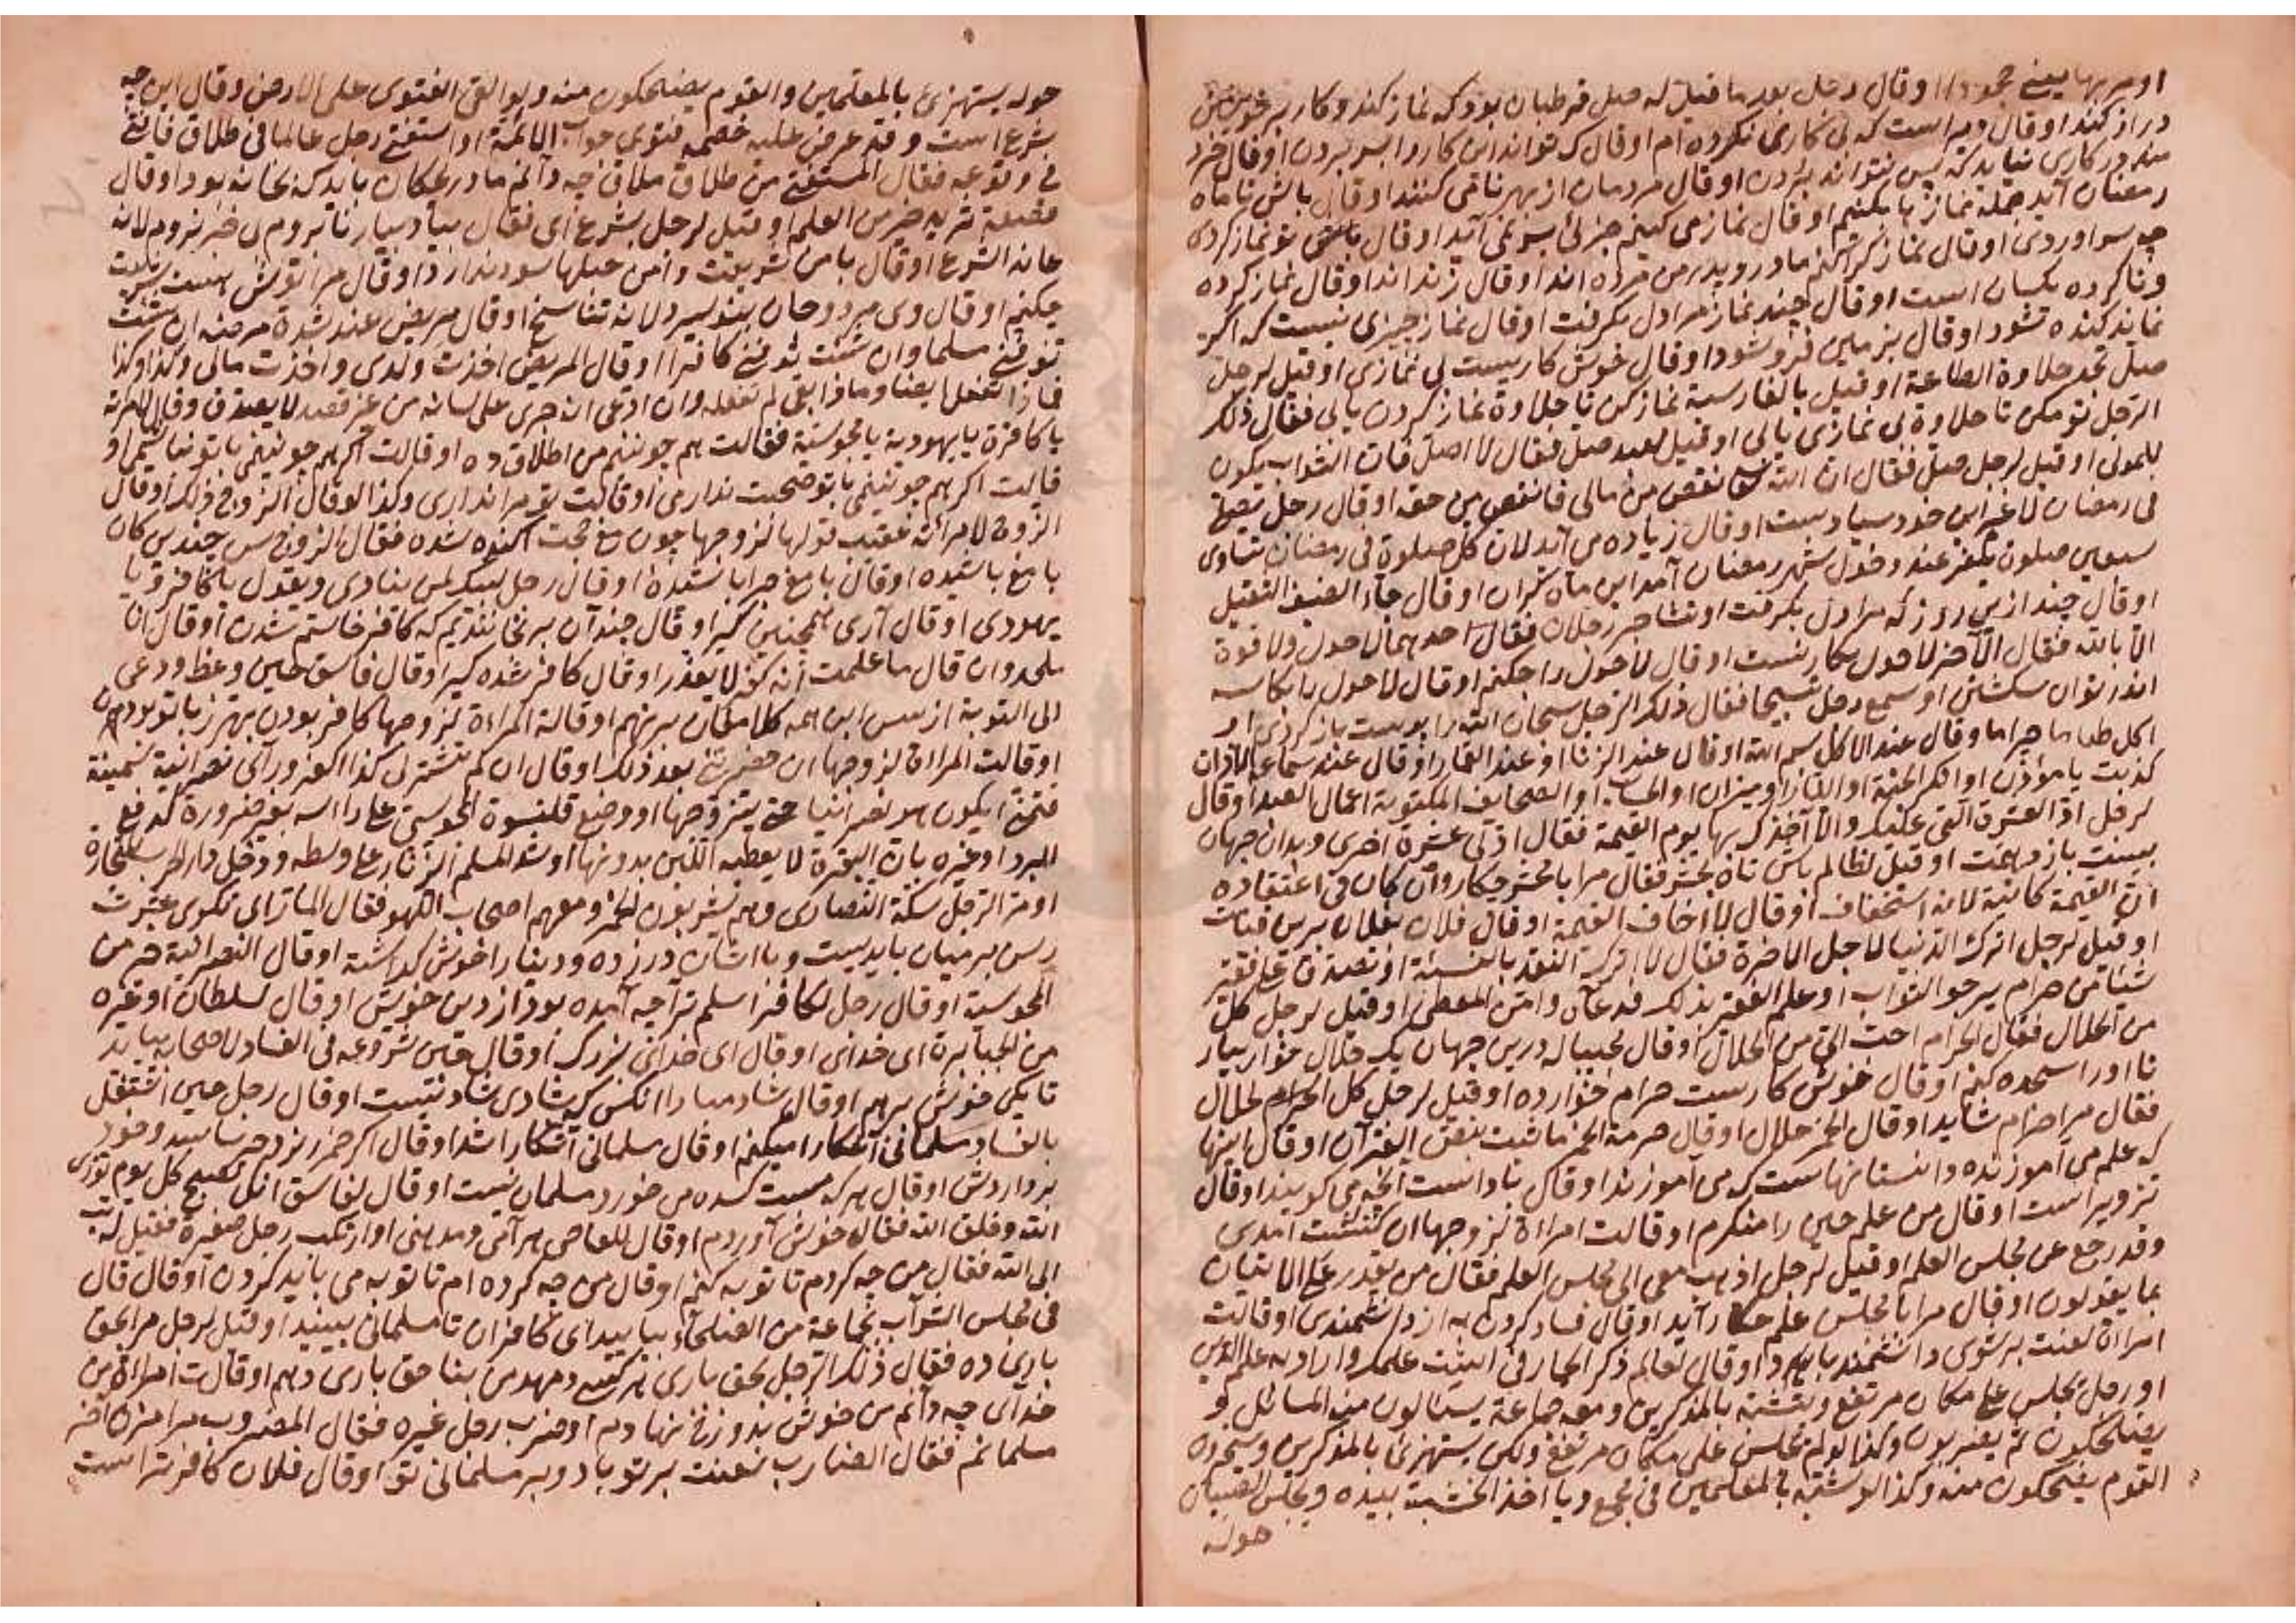 او مر بها يعني جحودا او قال رجل بعد ما قيل له صل قرطبان بود كه نماز كند و كار بر خويشتن
دراز كند او قال دير است كه بي كاري نكرده ام او قال كه تواند اين كار را بسر بردن او قال خرد
مند در كاري نيايد كه بسر نتواند بردن او قال مردمان از بهر ما مي كنند او قال باش تا ماه
رمضان آيد جمله نماز با بكنيم او قال نماز مي كنم چيزي بسر نمي آيد او قال تو نماز كردي
چه سر اوردي او قال نماز كرا كنم مادر و پدر من مرده اند او قال زنده اند او قال نماز كرده
و نا كرده يكسان است او قال چند نماز مرا دل بگرفت او قال نماز چيزي نيست كه اكر
نماند كنده شود او قال بزمين فرو شود او قال خوش كاريست بي نمازي او قيل لرجل
صل تجد حلاوة الطاعة او قيل بالفارسية نماز كن تا حلاوة نماز كردن يابي فقال ذلك
الرجل تو مكن تا حلاوة بي نمازي يابي او قيل لعبد صل فقال لا اصل فان الثواب يكون
للمولى او قيل لرجل صل فقال ان الله نقص من مالي فانقص من حقه او قال رجل يصلي
في رمضان لا غير اين خود بسيار است او قال زياده مي آيد لان كل صلوة في رمضان تساوي
سبعين صلوة يكفر عند دخول شهر رمضان آمد اين ماه گران او قال جاء الضيف الثقيل
او قال چند ازين روزه كه مرا دل بگرفت او تشاجر رجلان فقال احدهما لا حول ولا قوة
الا بالله فقال الآخر لا حول بكار نيست او قال لا حول را چكنم او قال لا حول را بكاسه
اندر نتوان شكستن او سمع رجل تسبيحا فقال ذلك الرجل سبحان الله را پوست باز كردي او
اكل طعاما حراما وقال عند الاكل بسم الله او قال عند الزنا او عند القمار او قال عند سماع الاذان
كذبت يا مؤذن او انكر الجنة او النار او ميزان او الحساب او الصحايف المكتوبة اعمال العبد او قال
لرجل اد العشرة التي عليك والا آخذ بها يوم القيمة فقال اد لي عشرة اخرى و بدان جهان
بيست باز دهمت او قيل لظالم باش تا به محشر فقال مرا با محشر چكار و ان كان في اعتقاده
ان القيمة كائنة لانه استخفاف او قال لا اخاف القيمة او قال فلان
او قيل لرجل اترك الدنيا لاجل الاخرة فقال لا اترك النقد بالنسئة او تصدق على فقير
شيئا من حرام يرجو الثواب او علم الفقير بذلك فدعا له و امن المعطى او قيل لرجل كل
من الحلال فقال الحرام احب الي من الحلال او قال مجيبا له درين جهان يك حلال خوار بيار
تا اورا سجده كنم او قال خوش كاريست حرام خوارده او قيل لرجل كل الحلال
فقال مرا حرام شايد او قال الخمر حلال او قال حرمة الخمر ما ثبت بنص القرآن او قال اينها
كه علم مي آموزنده داستانهاست كه مي آموزند او قال باد است آنچه مي گويند او قال
تزوير است او قال من علم حيل را منكرم او قالت امراة لزوجها از كنشت آمدي
وقد رجع عن مجلس العلم او قيل لرجل اذهب معي الى مجلس العلم فقال من يقدر على الاتيان
بما يقولون او قال مرا با مجلس علم چكار آيد او قال فساد كردن به از دانشمندي او قالت
امراة لعنت بر شوي دانشمند باد او قال لعالم ذكر الحمار في است علمك و اراد به علم الدين
او رجل يجلس على مكان مرتفع و يتشبه بالمذكرين و معه جماعة يسئلون منه المسائل و
يضحكون ثم يضربون و كذا لو لم يجلس على مكان مرتفع ولكن يستهزئ بالمذكرين و سخره
القوم يضحكون منه و كذا لو تشبه بالمعلمين في مجمع و يا اخذ الخشبة بيده و يجلس الصبيان
حوله
حوله يستهزئ بالمعلمين والقوم يضحكون منه و لو القى الفتوى على الارض و قال اين چه
شرع است و قد عرض عليه خصمه فتوى جواب الائمة او استفتى رجل عالما في طلاق فافتى
في وقوعه فقال المستفتي من طلاق ملاق چه دانم مادر بچكان بايد كه بخانه بود او قال
قصعة ثريد خير من العلم او قيل لرجل بشرع آي فقال پياده بيار تا بروم بي خبر نروم لانه
عاند الشرع او قال با من شريعت و اين حيلها سود ندارد او قال مرا
چكنم او قال وي مرد و جان بتو سپرد لانه تناسخ او قال مريض عند شدة مرضه ان شئت
توفني مسلما وان شئت توفني كافرا او قال المريض اخذت ولدي و اخذت مالي وكذا وكذا
فماذا تفعل ايضا و ماذا بقي لم تفعله وان ادعى انه جرى على لسانه من غير قصد لا يصدق و قال لامراته
يا كافرة يا يهودية يا مجوسية فقالت هم چونينم من اطلاق ده او قالت اگر هم چونينمي با تو نباشمي او
قالت اكر هم چونينمي با تو صحبت ندارمي او قالت تو مرا نداري و كذا لو قال الزوج ذلك او قال
الزوج لامراته عقيب قولها لزوجها چون مغ آكنده شده فقال الزوج پس چندين گاه
با مغ باشيده او قال با مغ چرا باشيدي او قال رجل ليس بكريم ينادي و يقول يا كافر و يا
يهودي او قال آري همچنين گير او قال چندان برنجانيديم كه كافر خاستم شدن او قال انا
ملحد وان قال ما علمت انه كفر لا يعذر او قال كافر شده گير او قال فاسق حين وعظ و دعي
الى التوبة از پس اين همه كلاه مغان بر سر نهم او قالت المراءة لزوجها كافر بودن بهتر از با تو بودن
او قالت المراة لزوجها ان بعد ذلك او قال ان لم تشتر لي كذا اكفر و رأى نصرانية سمينة
فتمنى ان يكون هو نصرانيا حتى يتزوجها او وضع قلنسوة المجوسي على رأسه بغير ضرورة كدفع
البرد او غيره بان البقرة لا يعطيه اللبن بدونها او شد المسلم الزنار على وسطه و دخل دار الحرب للتجارة
او مر الرجل سكة النصارى وهم يشربون الخمر و معهم اصحاب اللهو فقال كوى عشرت
رسن بر ميان بايد بست و با ايشان در زده و دنيا را خوش گذاشته او قال النصرانية خير من
المجوسية او قال رجل لكافر اسلم ترا چه آمده بود از دين خويش او قال لسلطان او غيره
من الجبابرة اي خداي او قال اي خداي بزرگ او قال حين شروعه في الفساد لاصحابه بيائيد
تا يكي خوش بزيم او قال شاد مبادا آنكس كه بشادي شاد نيست او قال رجل حين اشتغل
بالفساد مسلماني آشكارا ميكنم او قال مسلماني آشكارا شد او قال اكر خمر ريزد جبرئيل
برداردش او قال هر كه مست مي خورد مسلمان نيست او قال لفاسق انك تصبح كل يوم تؤذي
الله و خلق الله فقال خوش آوردم او قال للمعاصي و مذهبي او ارتكب رجل صغيرة فقيل له تب
الى الله فقال من چه كردم تا توبه كنم او قال من چه كرده ام تا توبه مي بايد كردن او قال قال
في مجلس الشراب بجماعة من الصلحاء بيا بيد اي كافران تا مسلماني ببينيد او قيل لرجل مرا بحق
ياري ده فقال ذلك الرجل بحق ياري هر كسي دهد من بنا حق ياري دهم او قالت امراة من
خداي چه دانم من خويش بدوزخ نهادم او ضرب رجل غيره فقال المضروب مرا مزن آخر
مسلمانم فقال الضارب لعنت بر تو باد و بر مسلماني تو او قال فلان كافر تر است